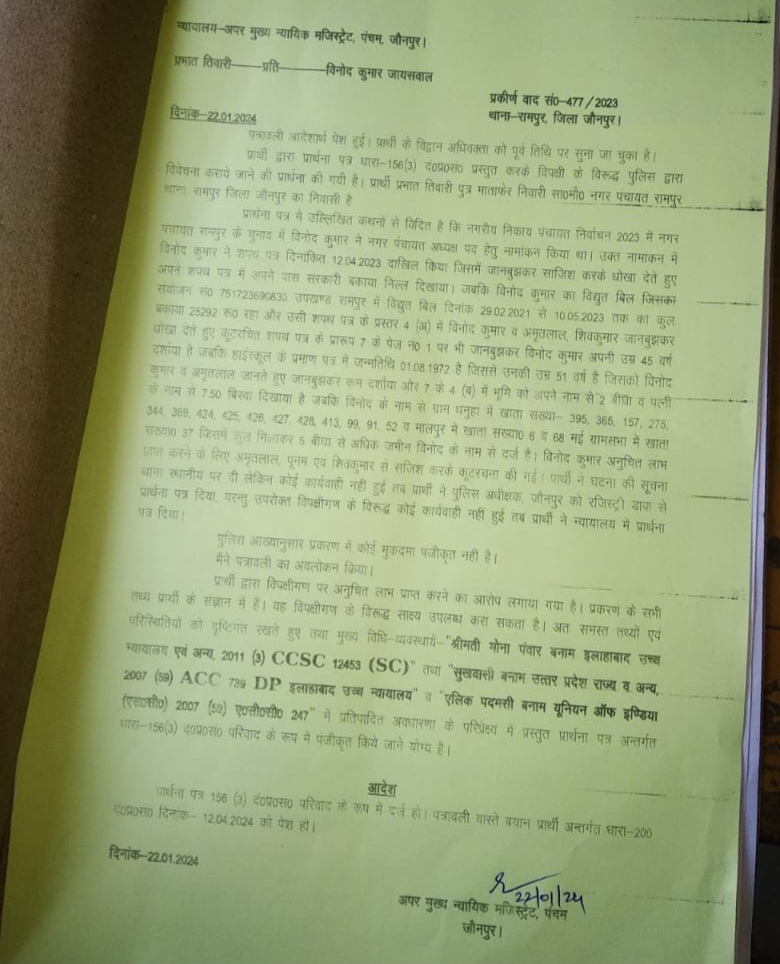 न्यायालय–अपर मुख्य न्यायिक मजिस्ट्रेट, पंचम, जौनपुर।
प्रभात तिवारी———प्रति————विनोद कुमार जायसवाल
प्रकीर्ण वाद सं0–477/2023
थाना–रामपुर, जिला जौनपुर।
दिनांक–22.01.2024
पत्रावली आदेशार्थ पेश हुई। प्रार्थी के विद्वान अधिवक्ता को पूर्व तिथि पर सुना जा चुका है।
प्रार्थी द्वारा प्रार्थना पत्र धारा–156(3) दं0प्र0सं0 प्रस्तुत करके विपक्षी के विरूद्ध पुलिस द्वारा
विवेचना कराये जाने की प्रार्थना की गयी है। प्रार्थी प्रभात तिवारी पुत्र माताफेर निवारी सा0मौ0 नगर पंचायत रामपुर
थाना, रामपुर जिला जौनपुर का निवासी है
प्रार्थना पत्र में उल्लिखित कथनो से विदित है कि नगरीय निकाय पंचायत निर्वाचन 2023 में नगर
पंचायत रामपुर के चुनाव में विनोद कुमार ने नगर पंचायत अध्यक्ष पद हेतु नामांकन किया था। उक्त नामांकन में
विनोद कुमार ने शपथ पत्र दिनांकित 12.04.2023 दाखिल किया जिसमें जानबुझकर साजिश करके धोखा देते हुए
अपने शपथ पत्र में अपने पास सरकारी बकाया निल्ल दिखाया। जबकि विनोद कुमार का विद्युत बिल जिसका
संयोजन सं0 751723690830 उपखण्ड रामपुर में विद्युत बिल दिनांक 29.02.2021 से 10.05.2023 तक का कुल
बकाया 25292 रू0 रहा और उसी शपथ पत्र के प्रस्तर 4 (अ) में विनोद कुमार व अमृतलाल, शिवकुमार जानबुझकर
धोखा देते हुए कूटरचित शपथ पत्र के प्रारूप 7 के पेज नं0 1 पर भी जानबुझकर विनोद कुमार अपनी उम्र 45 वर्ष
दर्शाया है जबकि हाईस्कूल के प्रमाण पत्र में जन्मतिथि 01.08.1972 है जिससे उनकी उम्र 51 वर्ष है जिसको विनोद
कुमार व अमृतलाल जानते हुए जानबुझकर कम दर्शाया और 7 के 4 (ब) में भूमि को अपने नाम से 2 बीघा व पत्नी
के नाम से 7.50 बिस्वा दिखाया है जबकि विनोद के नाम से ग्राम धनुहा में खाता संख्या– 395, 365, 157, 275,
344, 369, 424, 425, 426, 427, 428, 413, 99, 91, 52 व मालपुर में खाता संख्या0 6 व 68 मई ग्रामसभा में खाता
संख्या0 37 जिसमें कुल मिलाकर 5 बीघा से अधिक जमीन विनोद के नाम से दर्ज है। विनोद कुमार अनुचित लाभ
प्राप्त करने के लिए अमृतलाल, पूनम एवं शिवकुमार से सजिश करके कूटरचना की गई। प्रार्थी ने घटना की सूचना
थाना स्थानीय पर दी लेकिन कोई कार्यवाही नही हुई तब प्रार्थी ने पुलिस अधीक्षक, जौनपुर को रजिस्ट्री डाक से
प्रार्थना पत्र दिया, परन्तु उपरोक्त विपक्षीगण के विरूद्ध कोई कार्यवाही नहीं हुई तब प्रार्थी ने न्यायालय में प्रार्थना
पत्र दिया।
पुलिस आख्यानुसार प्रकरण में कोई मुकदमा पंजीकृत नही है।
मैने पत्रावली का अवलोकन किया।
प्रार्थी द्वारा विपक्षीगण पर अनुचित लाभ प्राप्त करने का आरोप लगाया गया है। प्रकरण के सभी
तथ्य प्रार्थी के संज्ञान में है। वह विपक्षीगण के विरूद्ध साक्ष्य उपलब्ध करा सकता है। अतः समस्त तथ्यों एवं
परिस्थितियो को दृष्टिगत रखते हुए तथा मुख्य विधि–व्यवस्थाये–"श्रीमती मोना पंवार बनाम इलाहाबाद उच्च
न्यायालय एवं अन्य, 2011 (3) CCSC 12453 (SC)" तथा "सुखवासी बनाम उत्तर प्रदेश राज्य व अन्य,
2007 (59) ACC 739 DP इलाहाबाद उच्च न्यायालय" व "एलिक पदमसी बनाम यूनियन ऑफ इण्डिया
(एस0सी0) 2007 (59) ए0सी0सी0 247" में प्रतिपादित अवधारणा के परिप्रेक्ष्य में प्रस्तुत प्रार्थना पत्र अन्तर्गत
धारा–156(3) दं0प्र0सं0 परिवाद के रूप में पंजीकृत किये जाने योग्य है।
आदेश
प्रार्थना पत्र 156 (3) दं0प्र0सं0 परिवाद के रूप में दर्ज हो। पत्रावली वास्ते बयान प्रार्थी अन्तर्गत धारा–200
दं0प्र0सं0 दिनांक– 12.04.2024 को पेश हो।
दिनांक–22.01.2024
22/01/24
अपर मुख्य न्यायिक मजिस्ट्रेट, पंचम
जौनपुर।